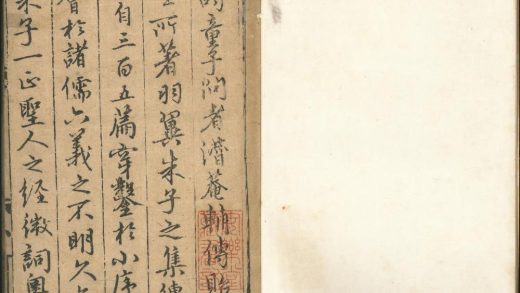 童子問者潛菴輔傳貽
生所著羽翼朱子之集傳
自三百五篇穿鑿於小序
會於諸儒六義之不明久
朱子一正聖人之經微詞奧